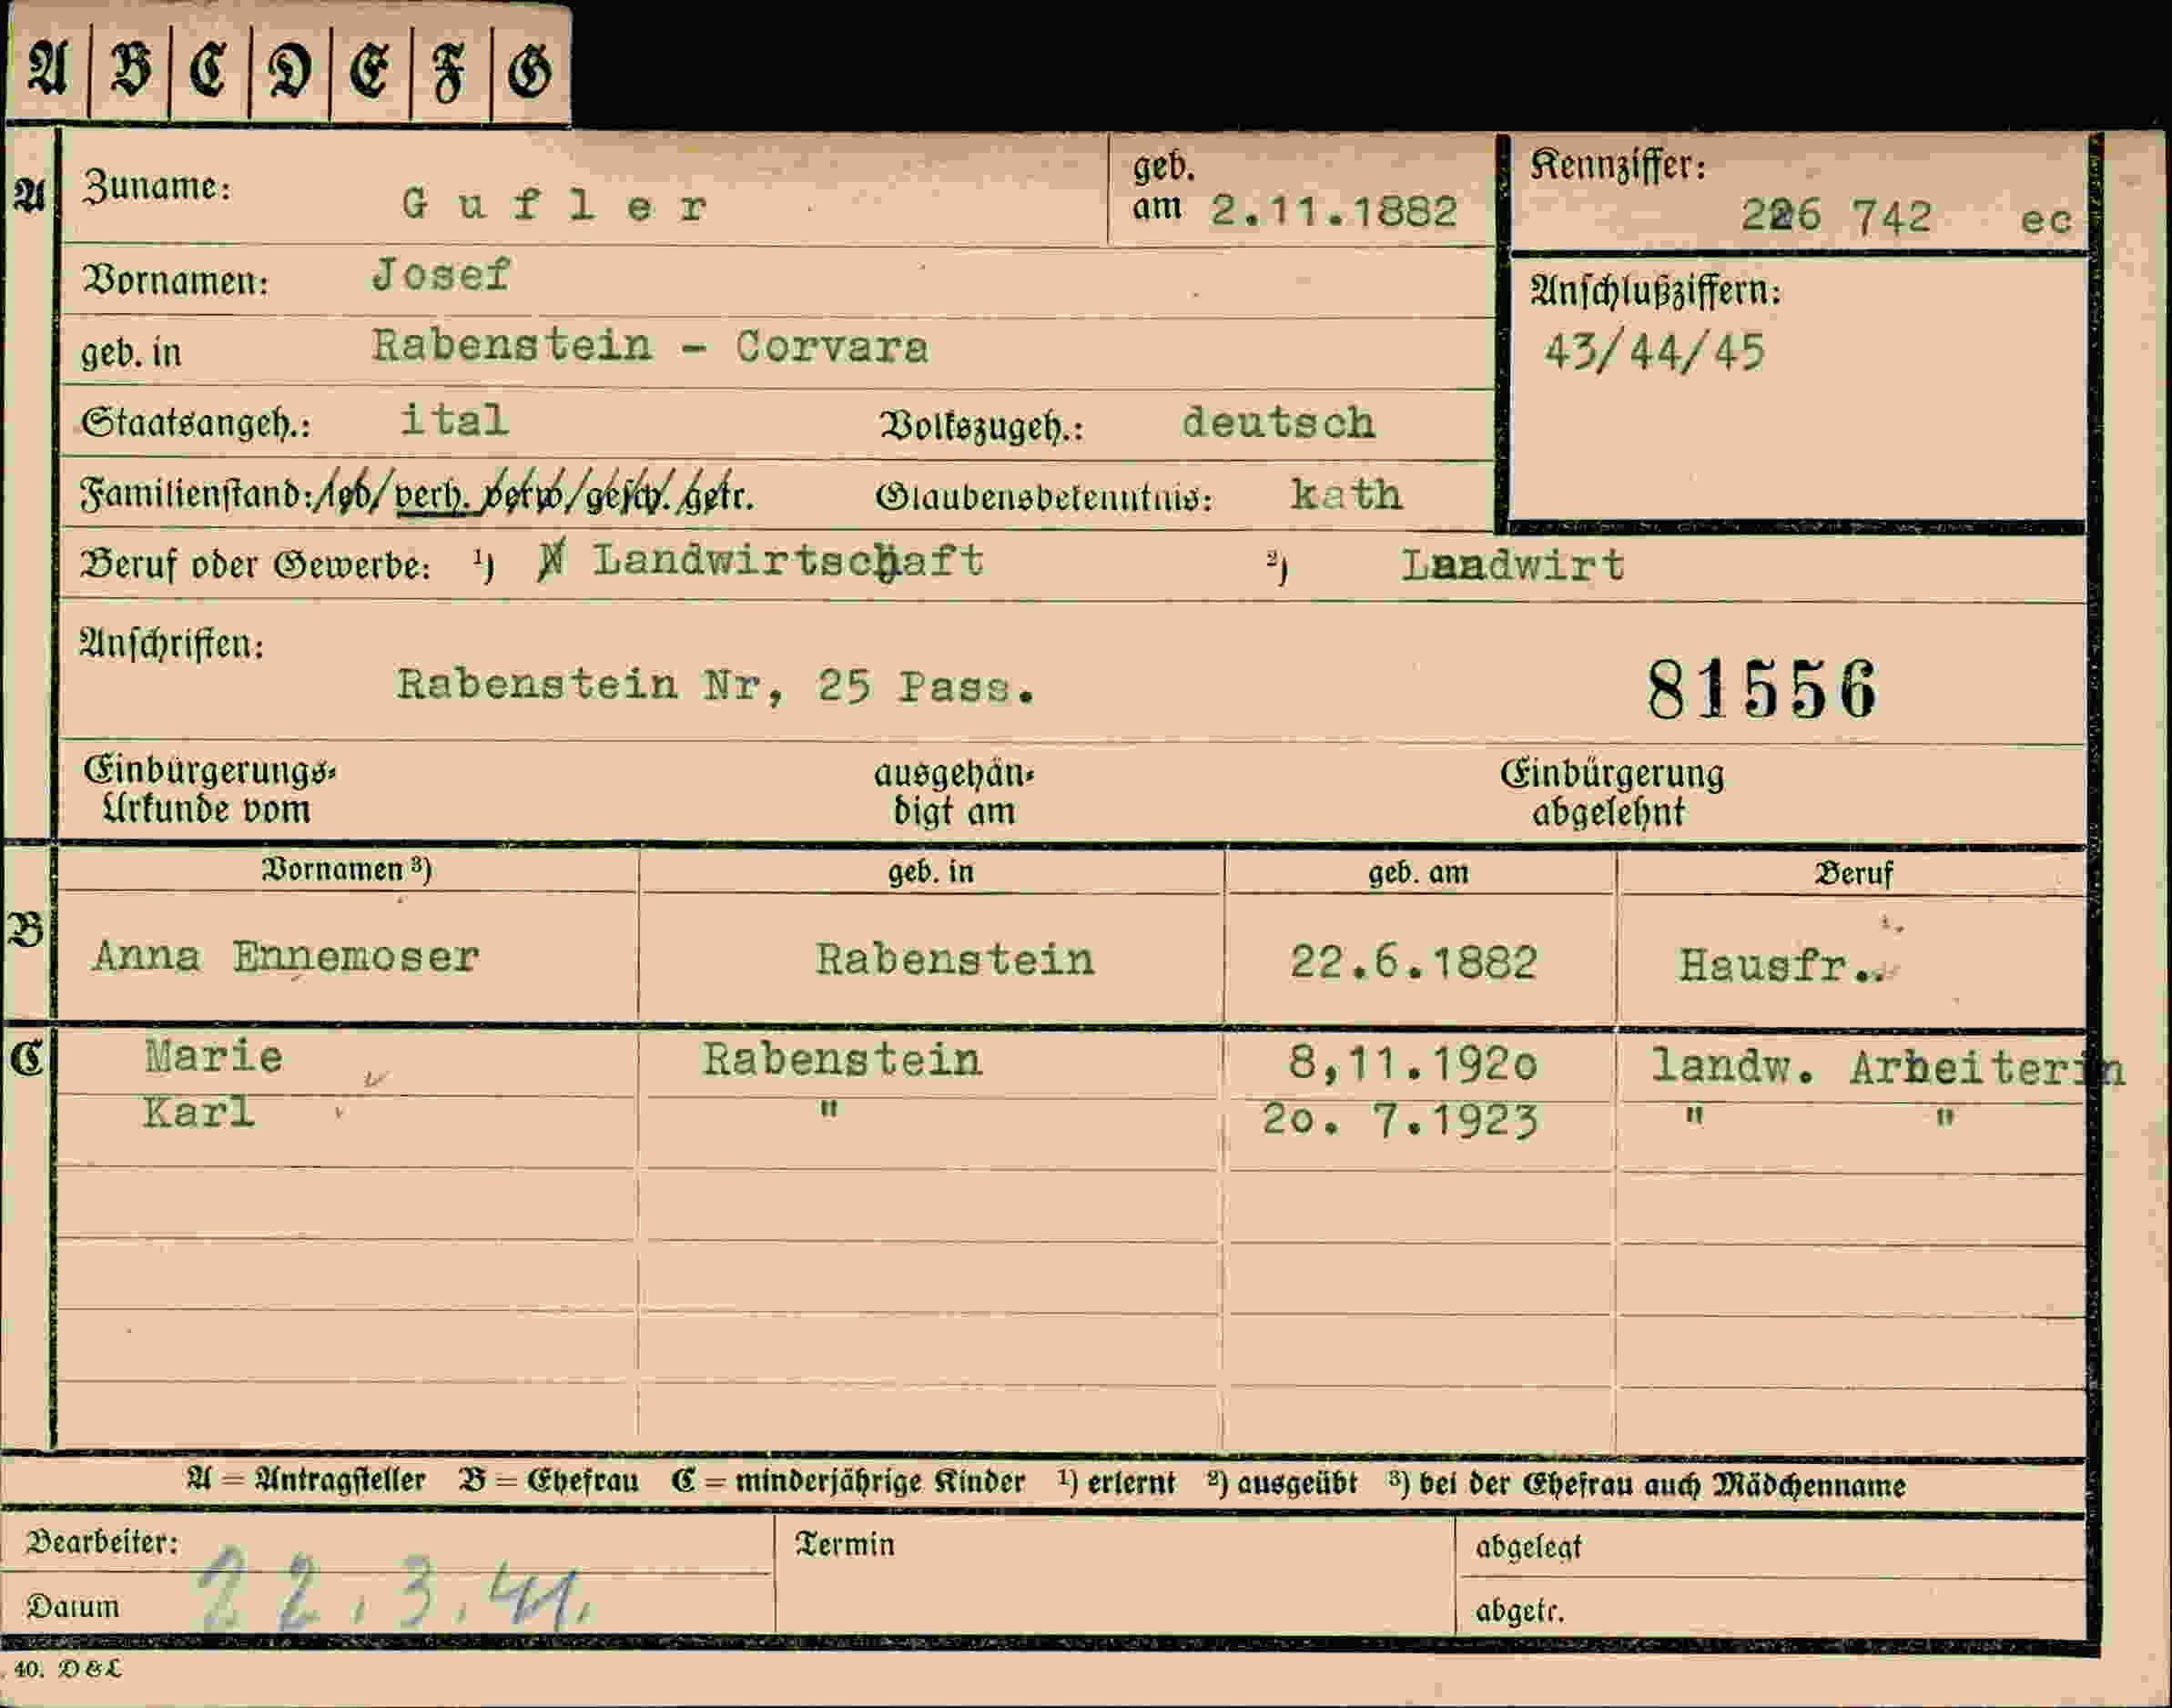 A B C D E F G
A Zuname: Gufler geb. am 2.11.1882 Kennziffer: 226 742 ec
Vornamen: Josef
Anschlußziffern:
geb. in Rabenstein - Corvara
43/44/45
Staatsangeh.: ital Volkszugeh.: deutsch
Familienstand: led/ verh. verw/gesch. getr. Glaubensbekenntnis: kath
Beruf oder Gewerbe: ¹) Landwirtschaft ²) Landwirt
Anschriften:
Rabenstein Nr, 25 Pass. 81556
Einbürgerungs- ausgehän- Einbürgerung
Urkunde vom digt am abgelehnt
Vornamen ³) geb. in geb. am Beruf
B Anna Ennemoser Rabenstein 22.6.1882 Hausfr..
C Marie Rabenstein 8,11.1920 landw. Arbeiterin
Karl " 20. 7.1923 " "
A = Antragsteller B = Ehefrau C = minderjährige Kinder ¹) erlernt ²) ausgeübt ³) bei der Ehefrau auch Mädchenname
Bearbeiter: Termin abgelegt
Datum 22.3.41. abgetr.
40. D & L